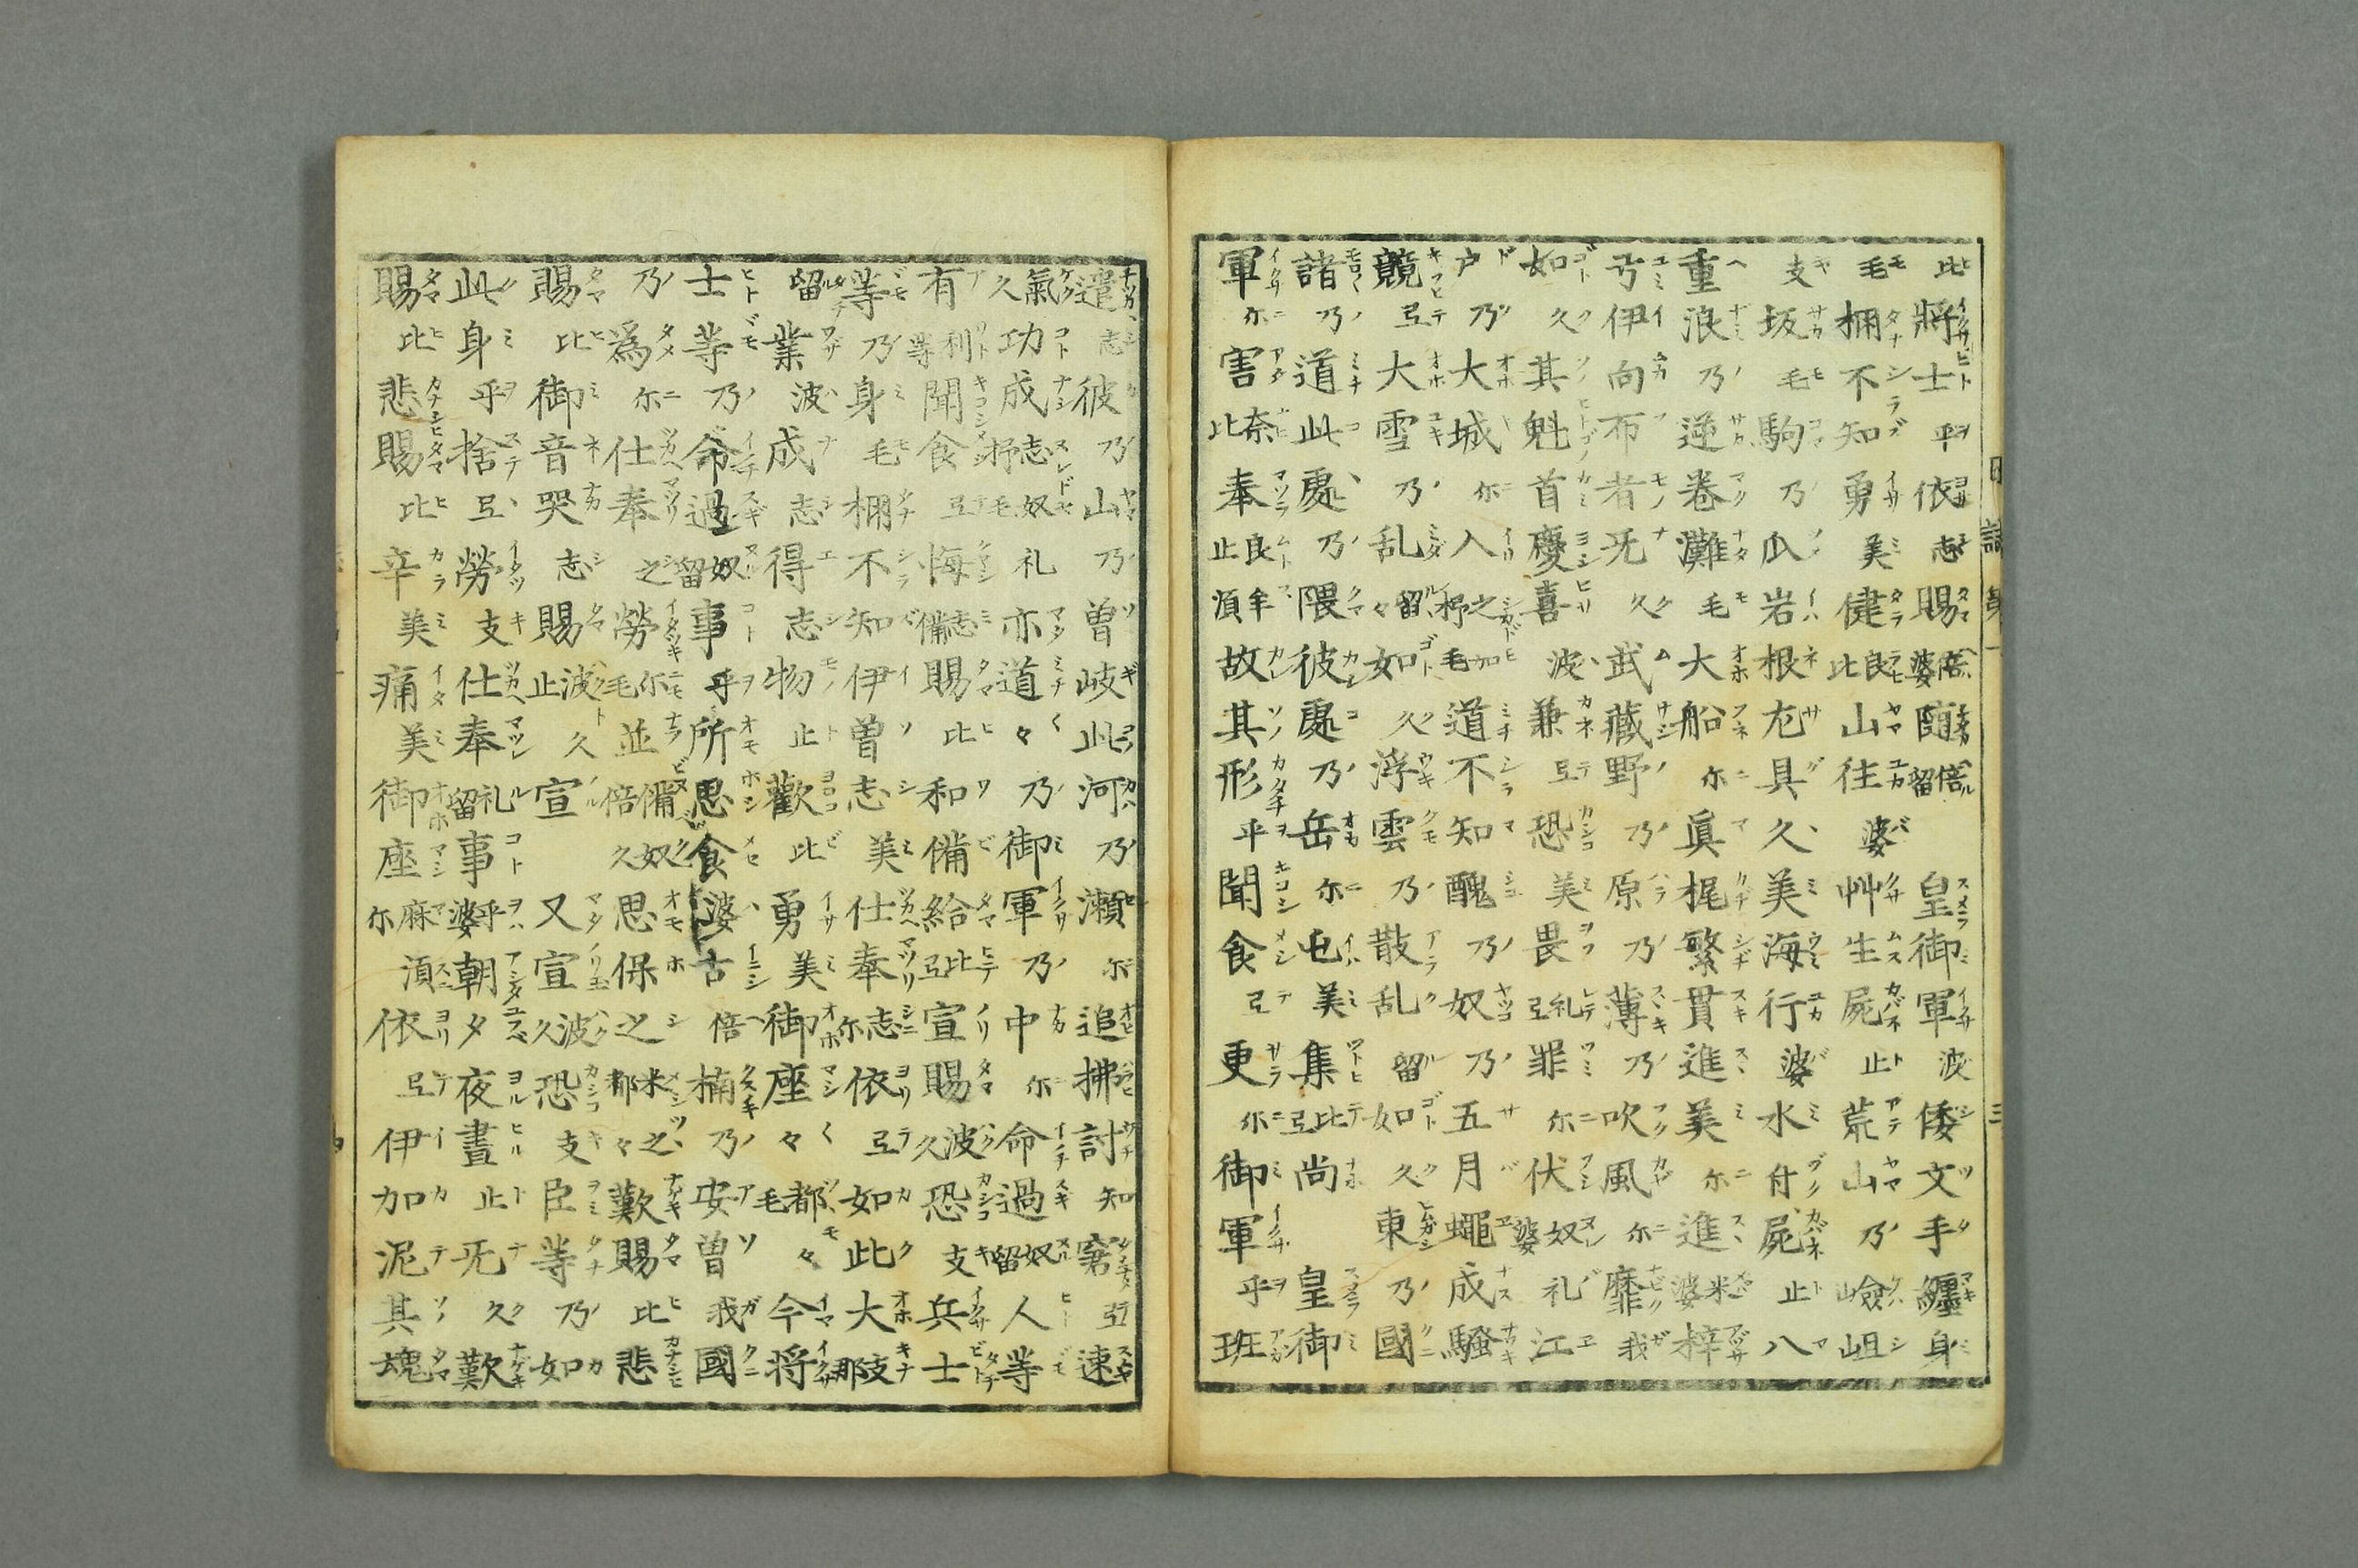 比將士乎依志賜倍婆隨倍留 皇御軍波倭文手纒身
毛棚不知勇美健良比山往婆艸生屍止荒山乃嶮岨
支坂毛駒乃爪岩根尨具久美海行婆水付屍止八
重浪乃逆卷灘毛大船尓眞梶繁貫進美尓進米婆梓
弓伊向布者旡久武藏野乃原乃薄乃吹風尓靡我
如久其魁首慶喜波兼弖恐美畏礼弖罪尓伏奴婆礼江
戸乃大城尓入之加杼毛道不知醜乃奴乃五月蠅成騷
競弖大雪乃乱留々如久浮雲乃散乱留如久東乃國
諸乃道此處乃隈彼處乃岳尓屯美集比弖尚 皇御
軍尓害奈比奉良牟止湏故其形乎聞食弖更尓御軍乎班
遣志彼乃山乃曽岐此河乃瀬尓追拂討知窘弖速
久氣功成志奴杼毛礼亦道々乃御軍乃中尓命過奴留人等
有利等聞食弖悔志備賜比和備給比弖宣賜波久恐支兵士
等乃身毛棚不知伊曽志美仕奉志尓依弖如此大岐那
留業波成志得志物止歡比勇美御座々都々毛今将
士等乃命過奴留事乎所思食婆古倍楠乃安曽我國
乃為尓仕奉之勞尓毛並備倍奴久思保之米都之々歎賜比悲
賜比御音哭志賜波久止宣 又宣波久恐支臣等乃如
此身乎捨弖勞支仕奉礼留事乎婆朝夕夜晝止旡久歎
賜比悲賜比辛美痛美御座麻尓湏依弖伊加泥其魂
日誌第一 三